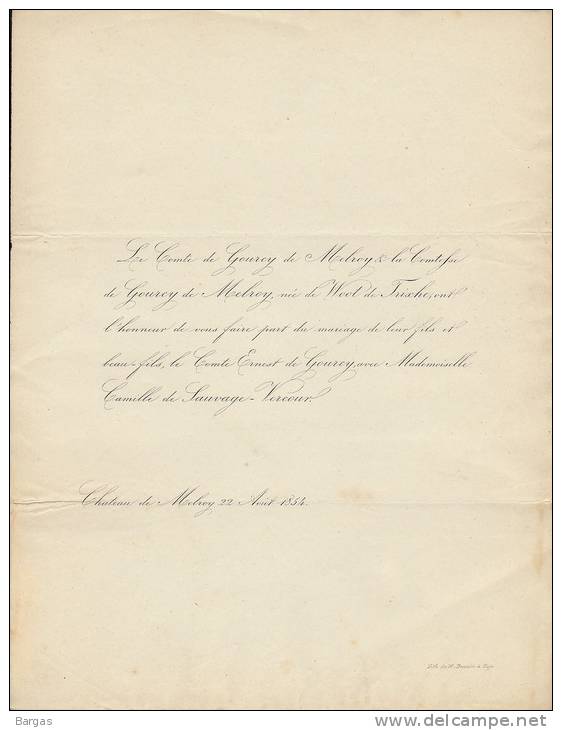 Le Comte de Gourcy de Melroy & la Comtesse
de Gourcy de Melroy, née de Woot de Trixhe, ont
l'honneur de vous faire part du mariage de leur fils et
beau-fils, le Comte Ernest de Gourcy, avec Mademoiselle
Camille de Sauvage-Vercour.
Chateau de Melroy 22 Août 1854.
Lith. de
Bargas
delcampe.net